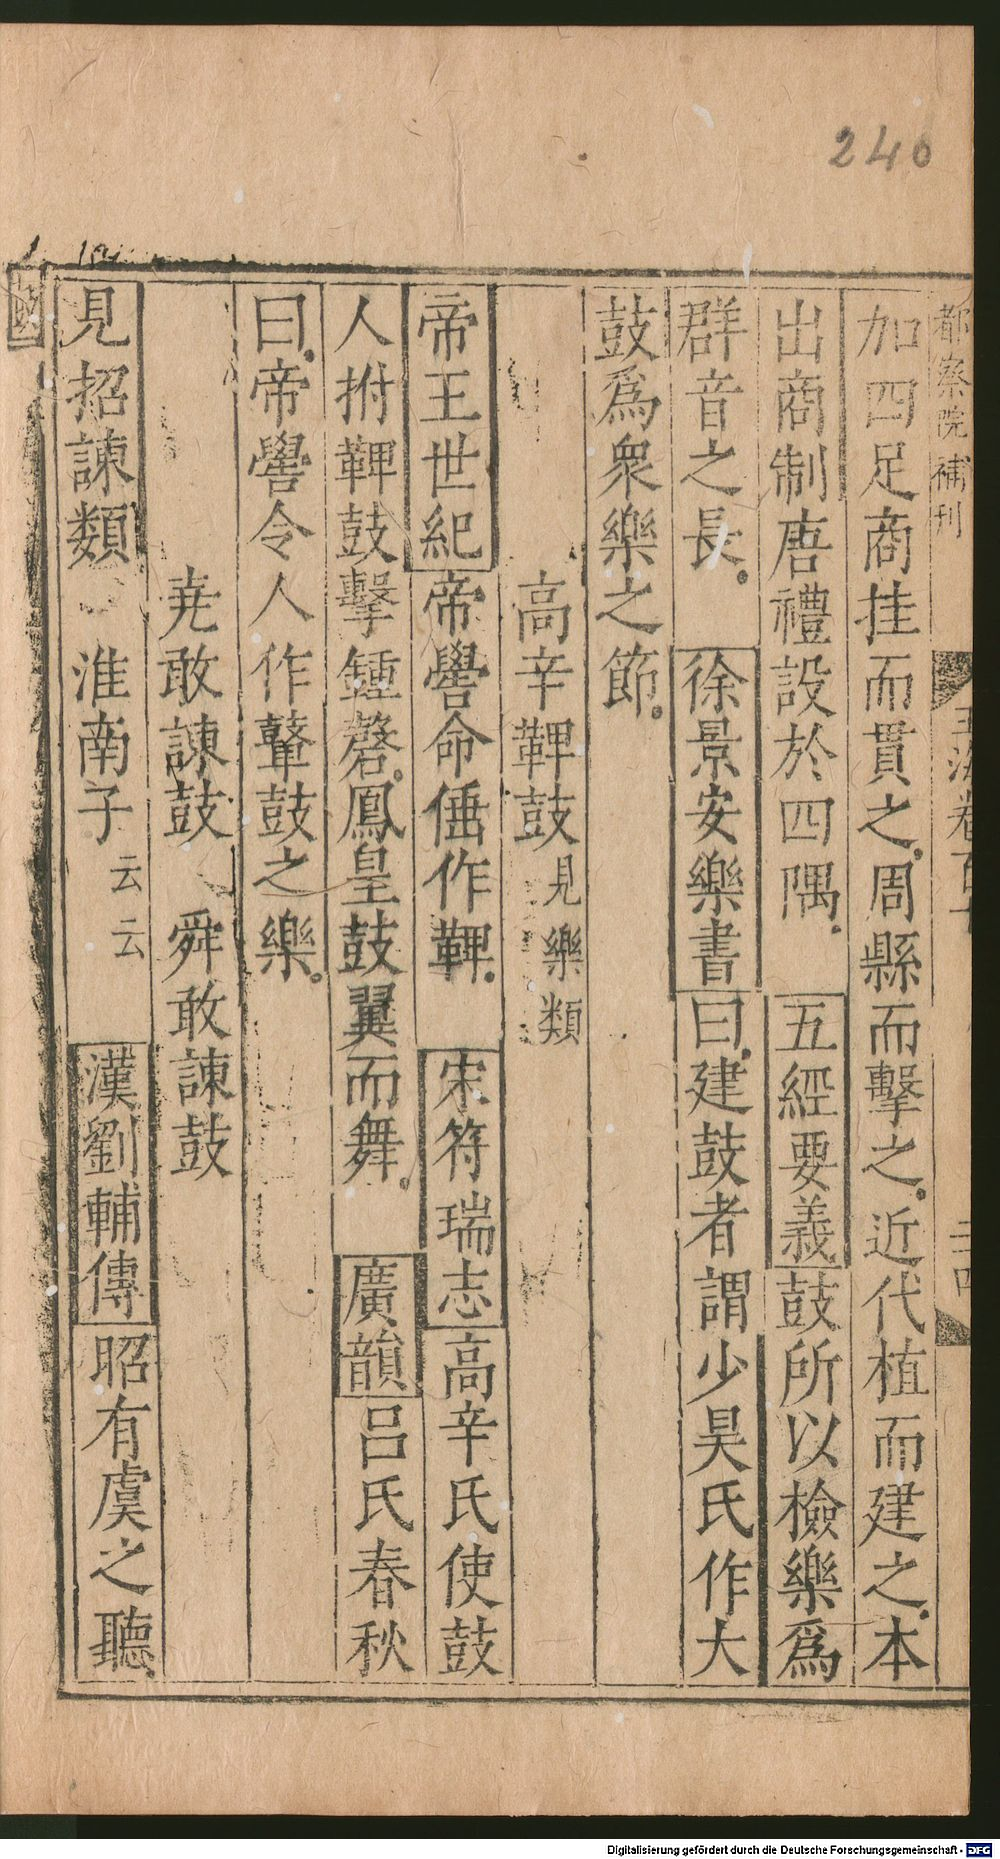 246
都察院補刊
玉海卷百十
二十四
加四足商挂而貫之周縣而擊之近代植而建之本
出商制唐禮設於四隅 五經要義鼓所以檢樂爲
群音之長 徐景安樂書曰建鼓者謂少昊氏作大
鼓爲衆樂之節
高辛鞞鼓見樂類
帝王世紀帝嚳命倕作鞞 宋符瑞志高辛氏使鼓
人拊鞞鼓擊鍾磬鳳皇鼓翼而舞 廣韻呂氏春秋
曰帝嚳令人作鼙鼓之樂
尭敢諫鼓 舜敢諫鼓
見招諫類 淮南子云云 漢劉輔傳昭有虞之聽
Digitalisierung gefördert durch die Deutsche Forschungsgemeinschaft - DFG